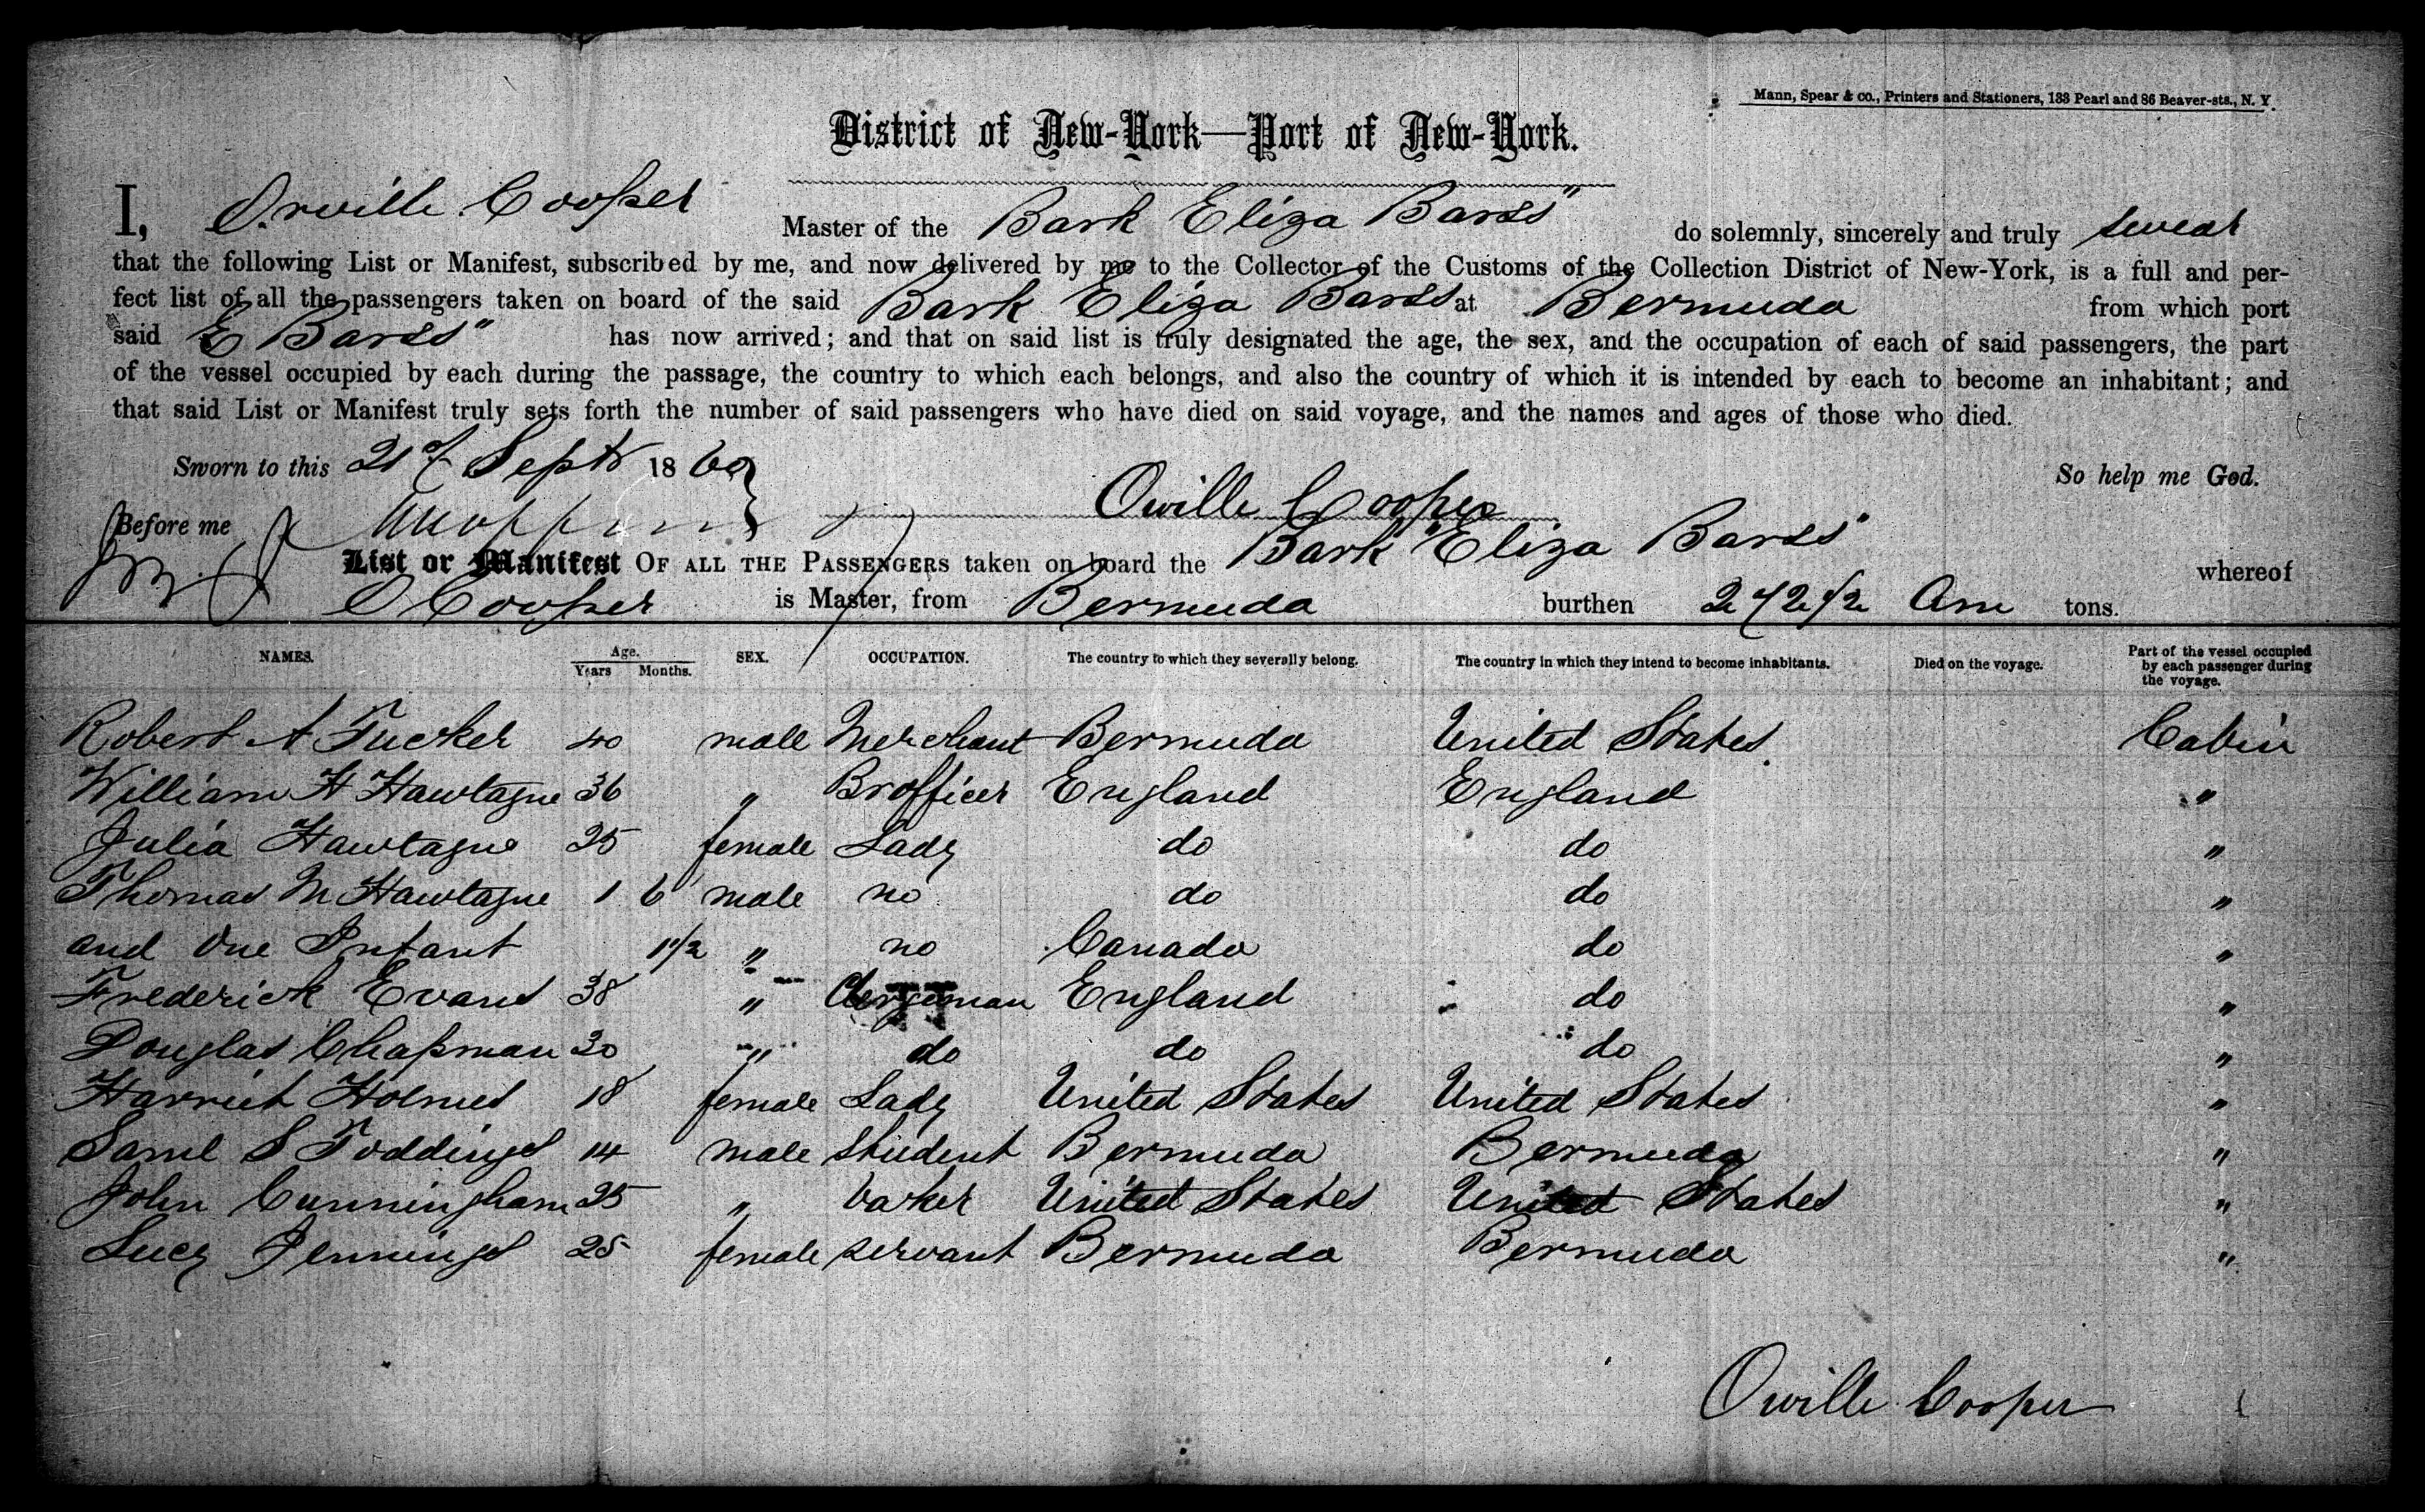 Mann, Spear & co., Printers and Stationers, 133 Pearl and 86 Beaver-sts., N. Y.
District of New-York—Port of New-York.
I, Orville Cooper Master of the Bark Eliza Barss" do solemnly, sincerely and truly swear
that the following List or Manifest, subscribed by me, and now delivered by me to the Collector of the Customs of the Collection District of New-York, is a full and per-
fect list of all the passengers taken on board of the said Bark Eliza Barss at Bermuda from which port
said E Barss" has now arrived; and that on said list is truly designated the age, the sex, and the occupation of each of said passengers, the part
of the vessel occupied by each during the passage, the country to which each belongs, and also the country of which it is intended by each to become an inhabitant; and
that said List or Manifest truly sets forth the number of said passengers who have died on said voyage, and the names and ages of those who died.
Sworn to this 21st Septr 1860 So help me God.
Before me Orville Cooper
List or Manifest OF ALL THE PASSENGERS taken on board the Bark "Eliza Barss" whereof
O Cooper is Master, from Bermuda burthen tons.
NAMES. Age. Years Months. SEX. OCCUPATION. The country to which they severally belong. The country in which they intend to become inhabitants. Died on the voyage. Part of the vessel occupied by each passenger during the voyage.
Robert A Tucker 40 male Merchant Bermuda United States. Cabin
William H Hawtagne 36 " Br officer England England "
Julia Hawtagne 25 female Lady do do "
Thomas M Hawtagne 1 6 male no do do "
and One Infant 1 1/2 " no Canada do "
Frederick Evans 38 " Clergiman England do "
Douglas Chapman 30 " do do do "
Harriet Holmes 18 female Lady United States United States "
Saml S Toddings 14 male Student Bermuda Bermuda "
John Cunningham 25 " barker United States United States "
Lucy Jennings 25 female servant Bermuda Bermuda "
Orville Cooper